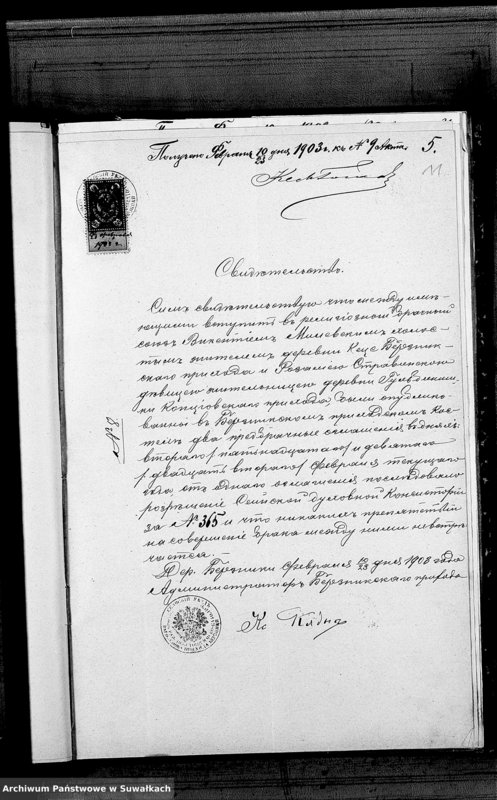 Получено Февраля 10/23 дня 1903 г. къ № 9 Акта
5.
11
23 февраля
1903 г.
Свидѣтельство.
Симъ свидѣтельствую что между имѣ-
ющими вступить въ религіозный брачный
союзъ Викентіемъ Милевскимъ холос-
тымъ жителемъ деревни Березник-
скаго прихода и Розаліею
дѣвицею жительницею деревни
прихода, были опублико-
ваны въ Березникскомъ приходскомъ Кос-
телѣ два предбрачныя оглашенія въ дняхъ:
втораго /пятнадцатаго/ и девятаго
/двадцать втораго/ Февраля текущаго
года, отъ одного оглашенія послѣдовало
разрѣшеніе Сейнской Духовной Консисторіи
за № 365 и что никакихъ препятствій
на совершеніе брака между ними не встрѣ-
чается.
№ 8
Дер. Березники Февраля 10/23 дня 1903 года
Администраторъ Березникскаго прихода
Кс.
Archiwum Państwowe w Suwałkach